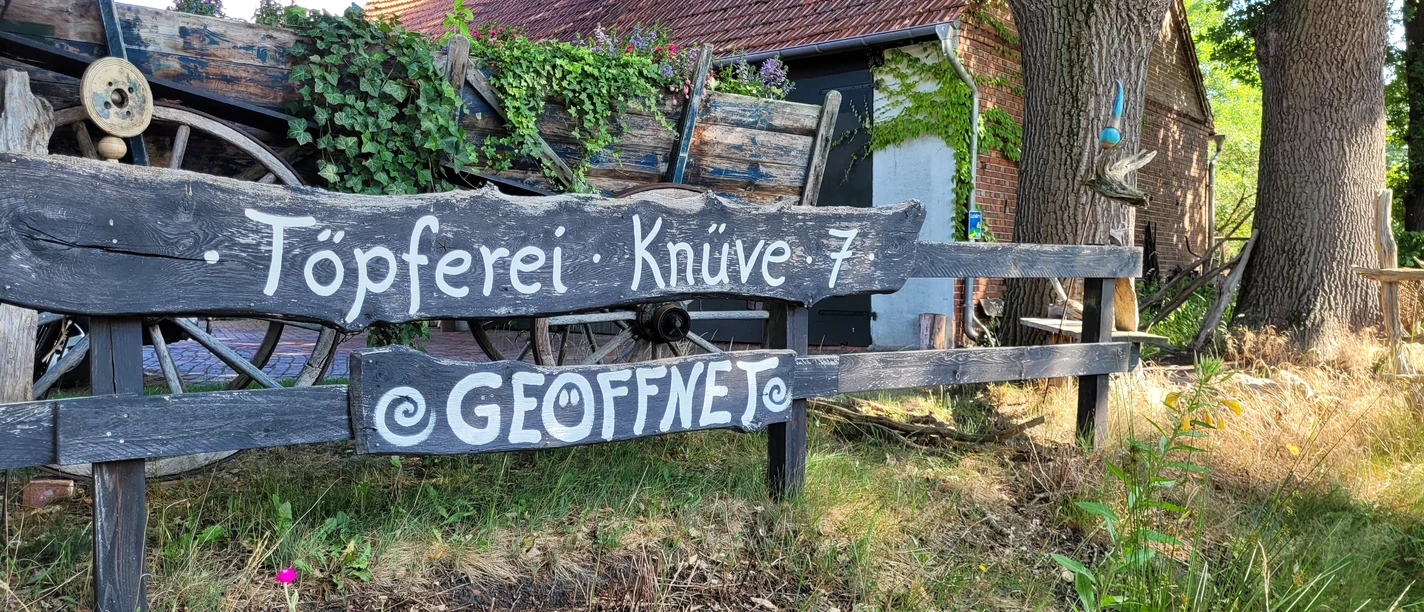 · Töpferei · Knüve · 7 ·
GEÖFFNET